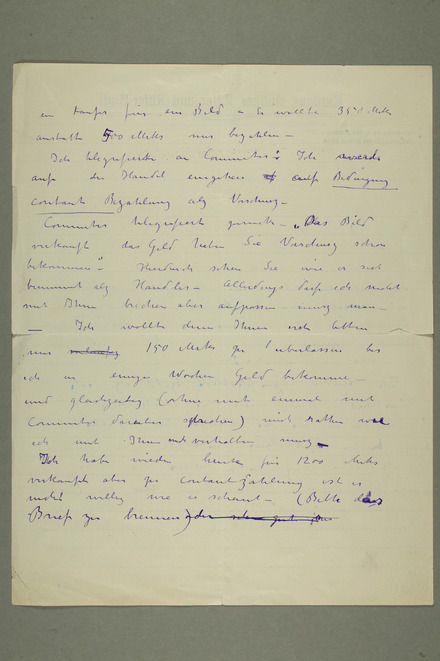 ein Käufer für ein Bild – Er wollte 350 Mks
anstatt 500 Mks nur bezahlen –
Ich telegrafierte an Commeter: Ich werde
auf den Handel eingehen auf Bedingung
contant Bezahlung als Vorschuss –
Commeter telegrafiert zurück – „Das Bild
verkauft das Geld haben Sie Vorschuss schon
bekommen“ – Hierdurch sehen Sie wie er sich
benimmt als Händler – Allerdings darf ich nicht
mit Ihnen brechen aber aufpassen muss man –
– Ich wollte denn Ihnen bitten
mir 150 Mks zu überlassen bis
ich in einige Wochen Geld bekomme –
und gleichzeitig (ohne mit einmal mit
Commeter darüber sprechen) mich rathen wie
ich mit Ihnen mich verhalten muss –
Ich habe wieder heute für 1200 Mks
verkauft aber zu contantzahlung ist er
nicht willig wie es scheint – (Bitte das
Brief zu brennen)